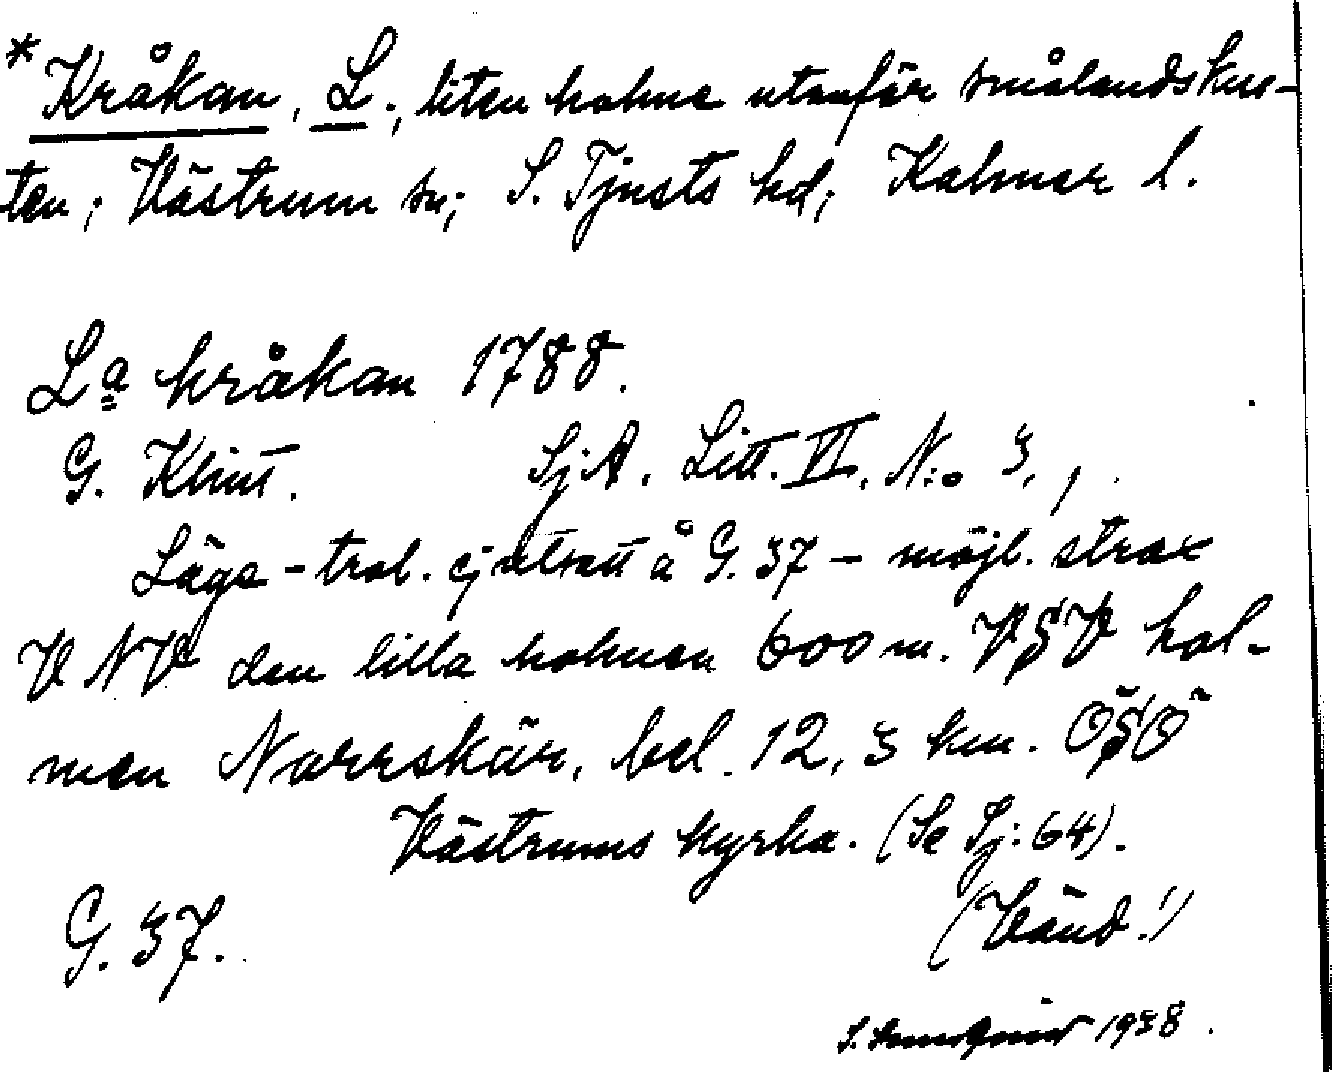 *Kråkan, L., liten holme utanför smålandskus-
ten; Västrum sn; S. Tjusts hd; Kalmar l.
La kråkan 1788.
G. Klint. SjA. Litt. VI. N:o 3.
Läge - trol. ej utsatt å G. 37 - möjl. strax
VNV den lilla holmen 600 m. VSV hol-
men Norrskär, bel. 12,3 km. ÖSÖ
Västrums kyrka. (Se Sj: 64).
G. 37. (Vänd!)
1938.